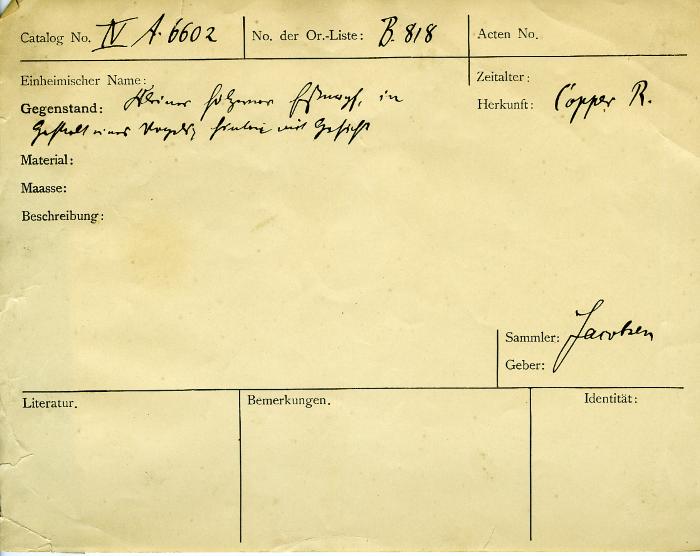 Catalog No. IV A. 6602
No. der Or.-Liste: B. 818
Acten No.
Einheimischer Name:
Zeitalter:
Gegenstand: Kleiner hölzerner Eßnapf, in
Herkunft: Copper R.
Gestalt eines Vogels, hinten mit Gesicht
Material:
Maasse:
Beschreibung:
Sammler: Jacobsen
Geber:
Literatur.
Bemerkungen.
Identität: